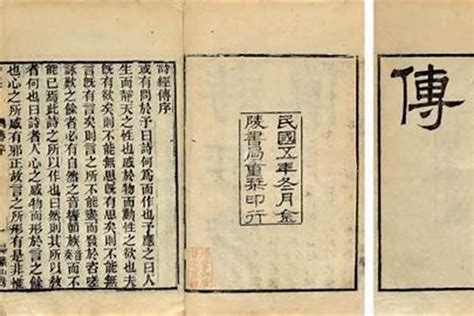 傳
民國五年冬月金
陵書局重栞印行
詩經傳序
或有問於予曰詩何爲而作也予應之曰人
生而靜天之性也感於物而動性之欲也夫
既有欲矣則不能無思既有思矣則不能無
言既有言矣則言之所不能盡而發於咨嗟
詠歎之餘者必有自然之音響節族音奏而不
能已焉此詩之所以作也曰然則其所以教
者何也曰詩者人心之感物而形於言之餘
也心之所感有邪正故言之所形有是非惟